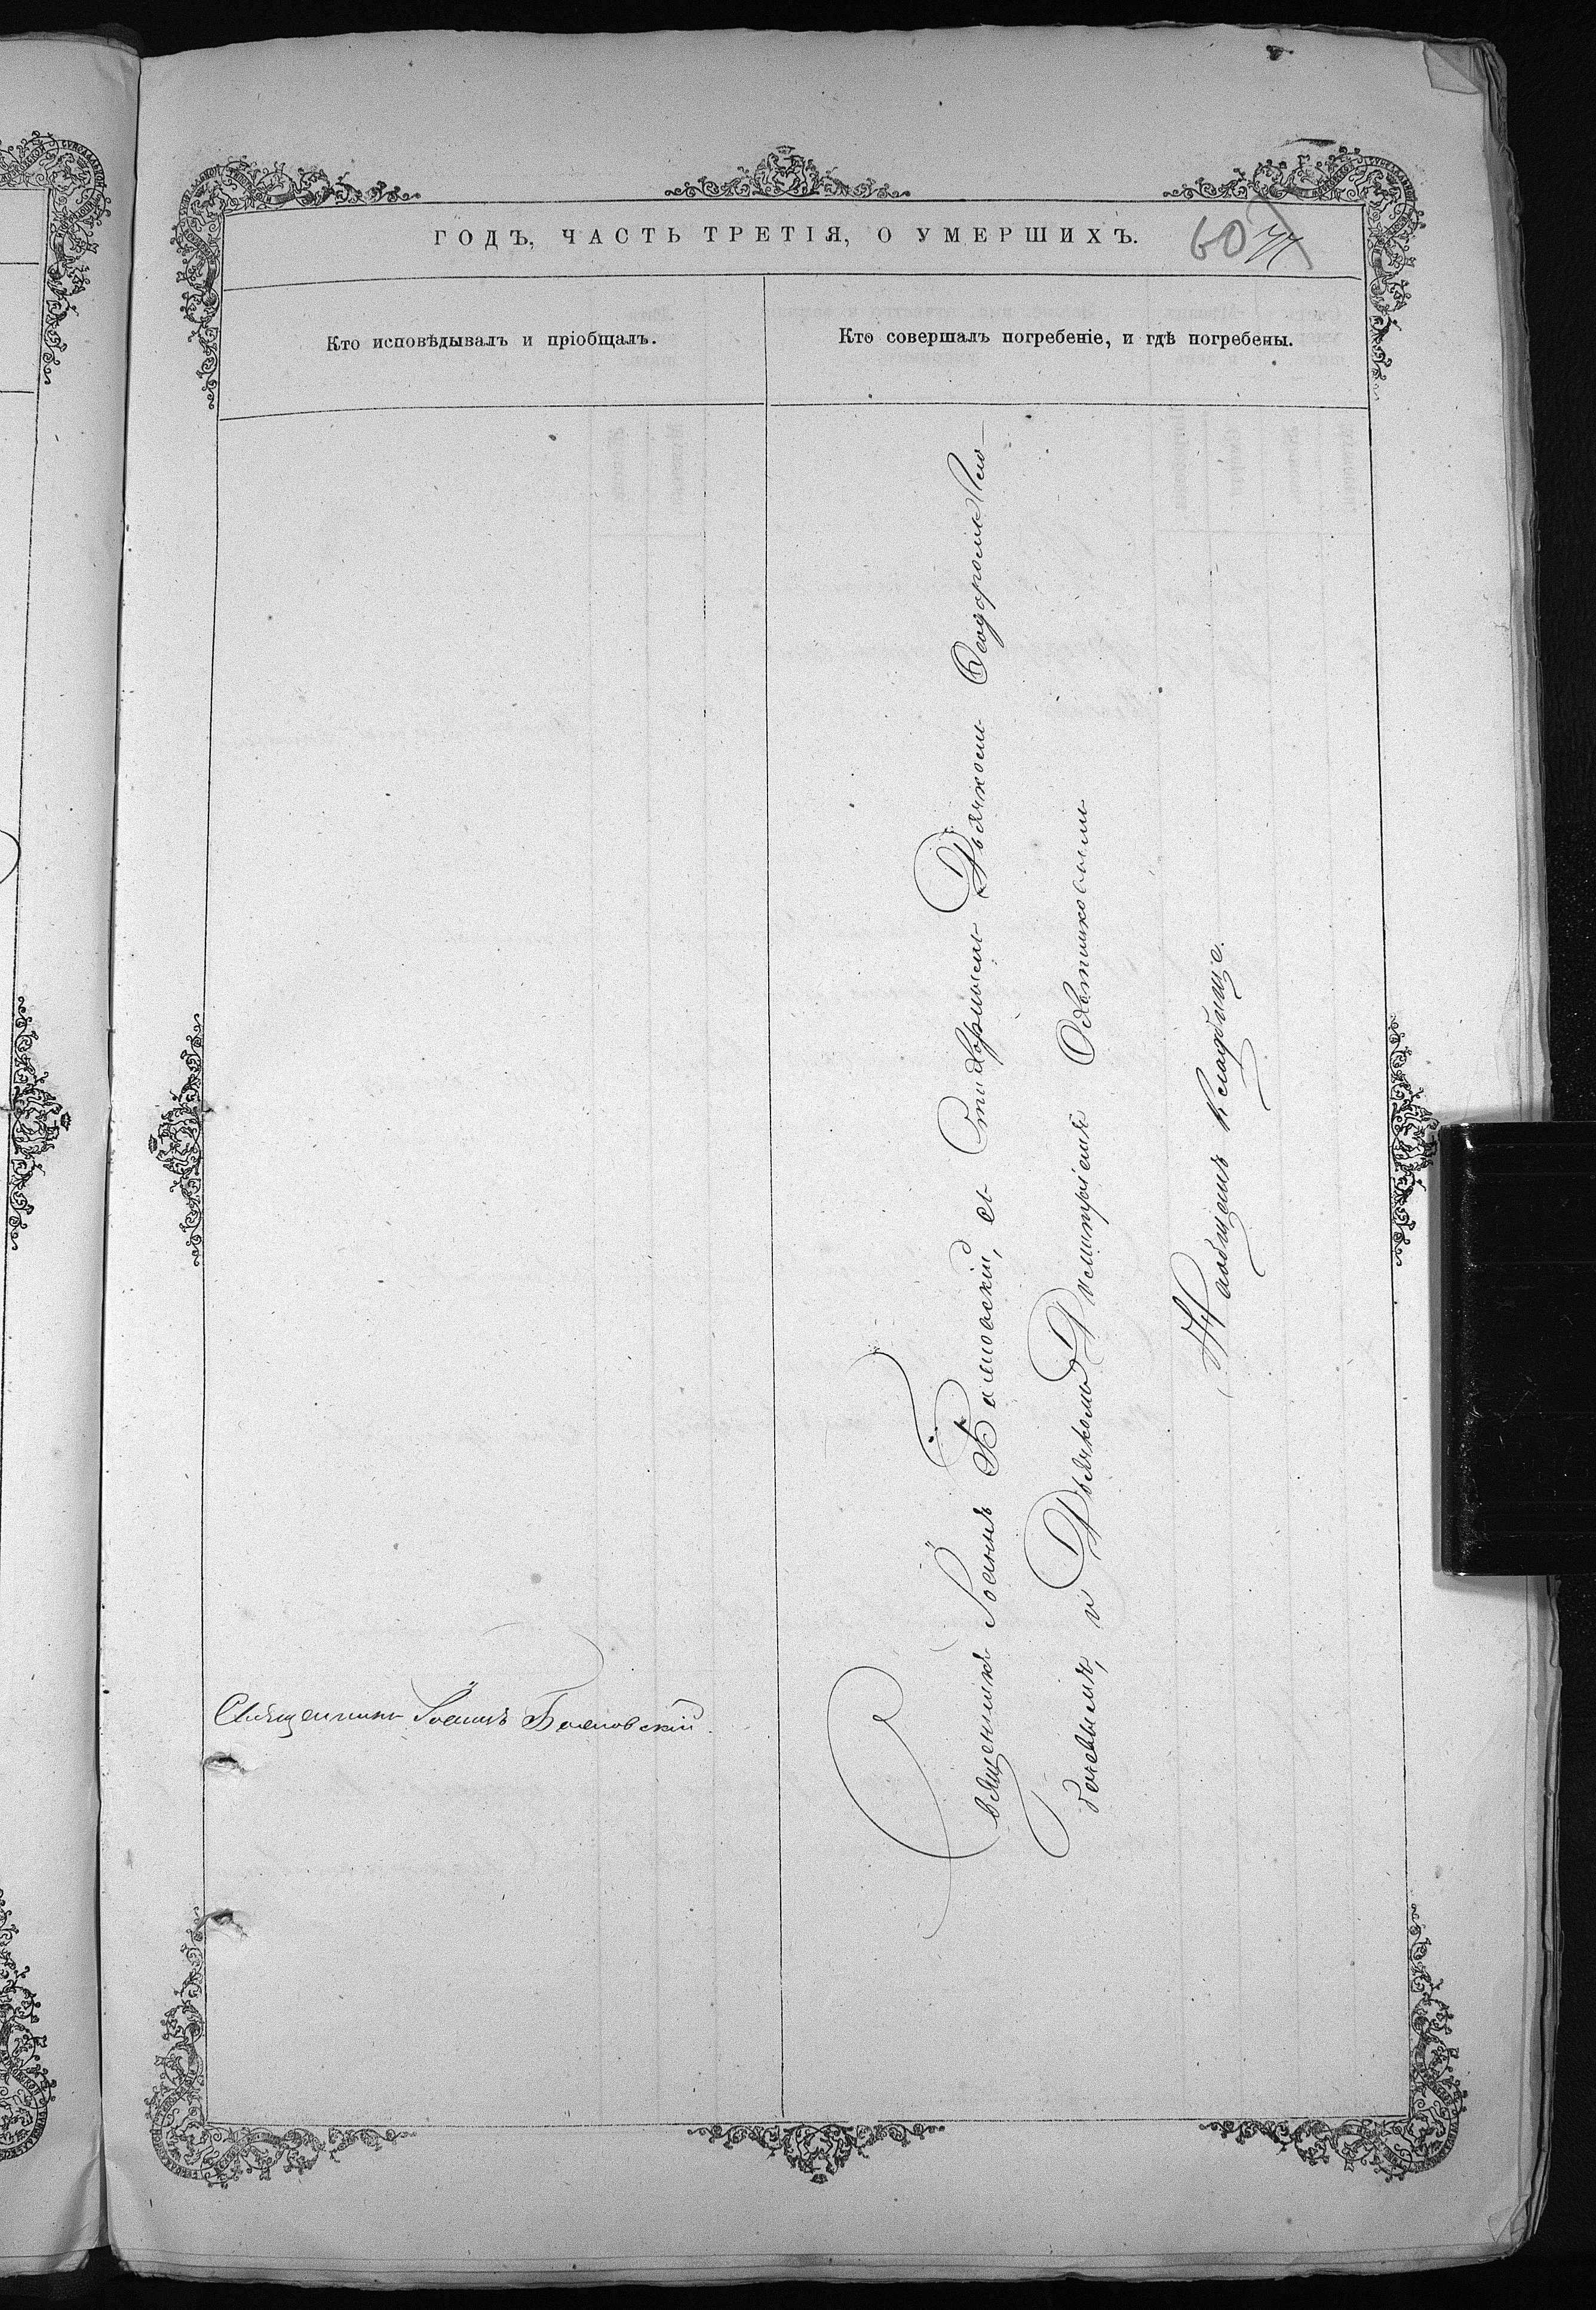 ГОДЪ, ЧАСТЬ ТРЕТІЯ, О УМЕРШИХЪ.
60
Кто исповѣдывалъ и пріобщалъ.
Кто совершалъ погребеніе, и гдѣ погребены.
Священникъ Іоаннъ Баяновскій.
Священникъ Іоаннъ Баяновскій, съ Стихарнымъ Дьячкомъ Ѳеодоромъ
и Дьячкомъ Димитріемъ
На общемъ кладбищѣ.